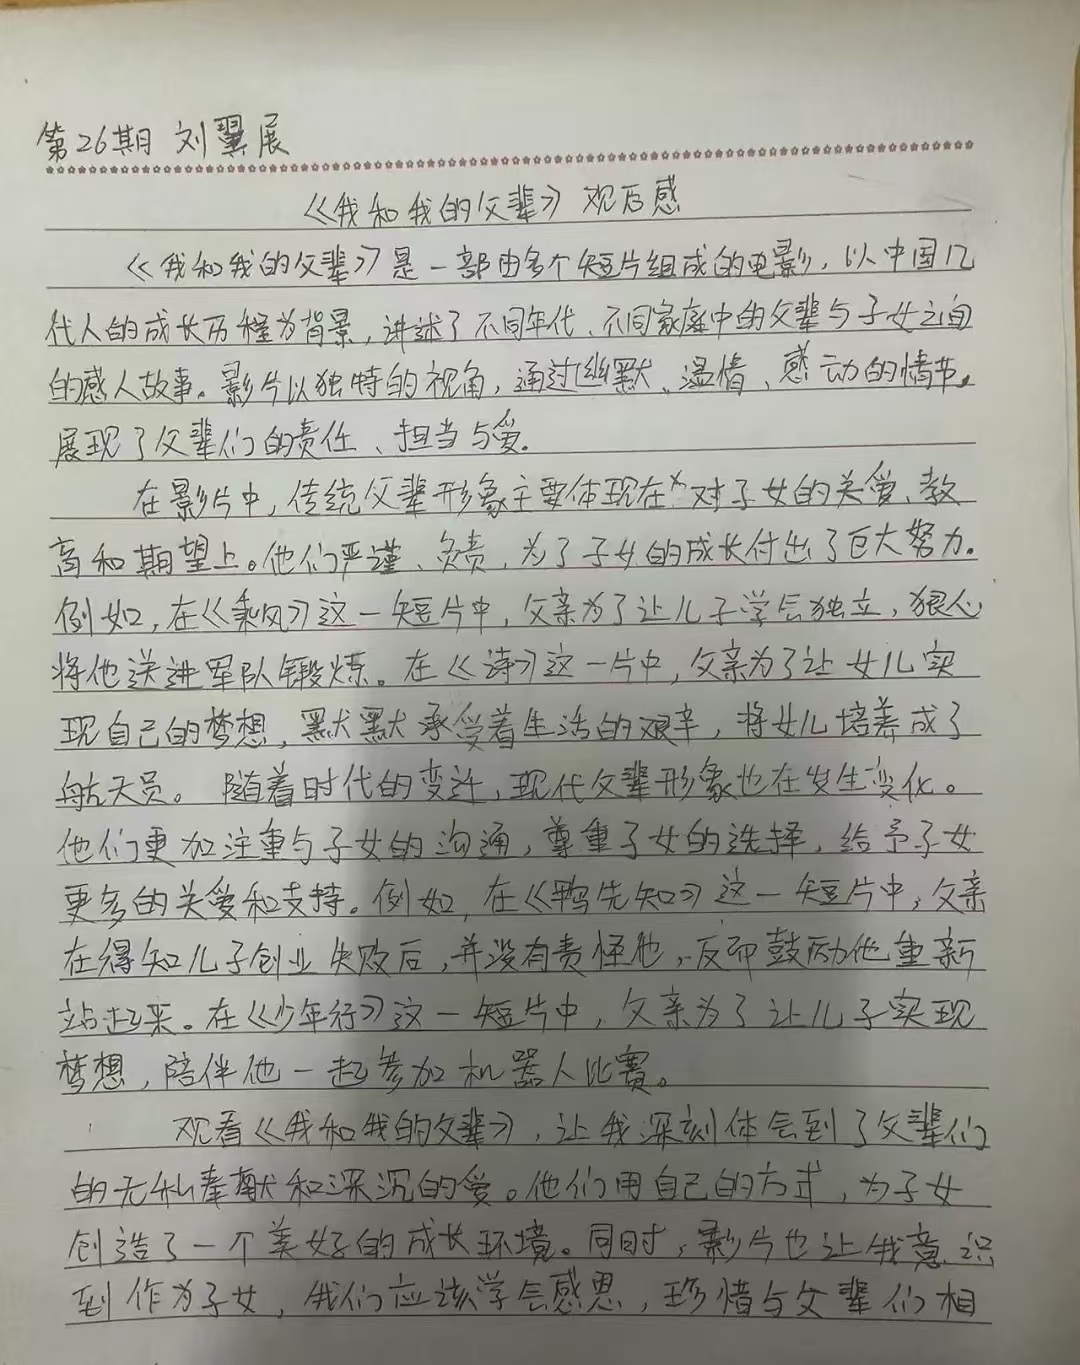 第26期 刘翼展
《我和我的父辈》观后感
《我和我的父辈》是一部由多个短片组成的电影，以中国几
代人的成长历程为背景，讲述了不同年代、不同家庭中的父辈与子女之间
的感人故事。影片以独特的视角，通过幽默、温情、感动的情节，
展现了父辈们的责任、担当与爱.
在影片中，传统父辈形象主要体现在对子女的关爱、教
育和期望上。他们严谨、负责，为了子女的成长付出了巨大努力.
例如，在《乘风》这一短片中，父亲为了让儿子学会独立，狠心
将他送进军队锻炼。在《诗》这一片中，父亲为了让女儿实
现自己的梦想，默默承受着生活的艰辛，将女儿培养成了
航天员。随着时代的变迁，现代父辈形象也在发生变化。
他们更加注重与子女的沟通，尊重子女的选择，给予子女
更多的关爱和支持。例如，在《鸭先知》这一短片中，父亲
在得知儿子创业失败后，并没有责怪他，反而鼓励他重新
站起来。在《少年行》这一短片中，父亲为了让儿子实现
梦想，陪伴他一起参加机器人比赛。
观看《我和我的父辈》，让我深刻体会到了父辈们
的无私奉献和深沉的爱。他们用自己的方式，为子女
创造了一个美好的成长环境。同时，影片也让我意识
到作为子女，我们应该学会感恩，珍惜与父辈们相